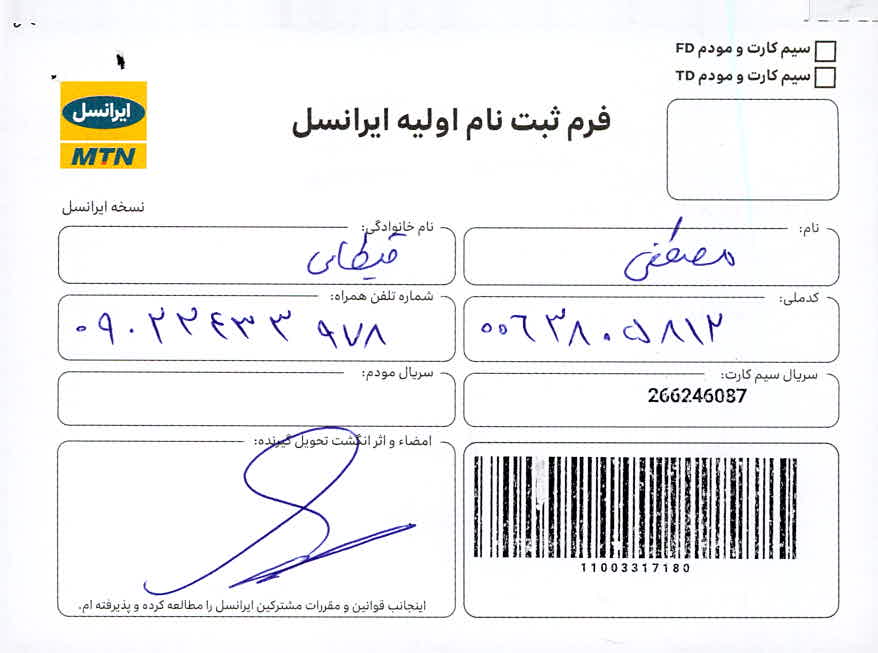 سیم کارت و مودم FD
سیم کارت و مودم TD
ایرانسل
MTN
فرم ثبت نام اولیه ایرانسل
نسخه ایرانسل
نام:
مصطفی
نام خانوادگی:
قیطاسی
کدملی:
۰۰۶۳۸۰۵۸۱۲
شماره تلفن همراه:
۰۹۰۲۲۴۳۳۹۷۸
سریال سیم کارت:
266246087
سریال مودم:
امضاء و اثر انگشت تحویل گیرنده:
11003317180
اینجانب قوانین و مقررات مشترکین ایرانسل را مطالعه کرده و پذیرفته ام.